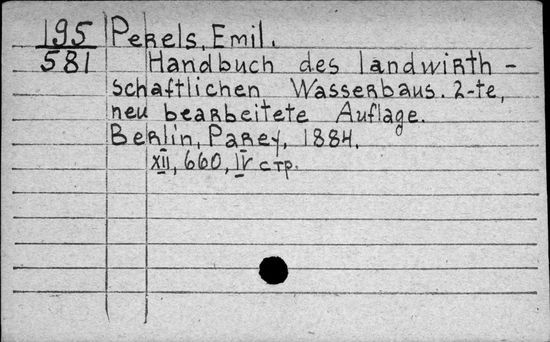 195 Perels, Emil.
581 Handbuch des landwirth -
schaftlichen Wasserbaus. 2-te,
neu bearbeitete Auflage.
Berlin, Parey, 1884.
XII, 660, IV стр.